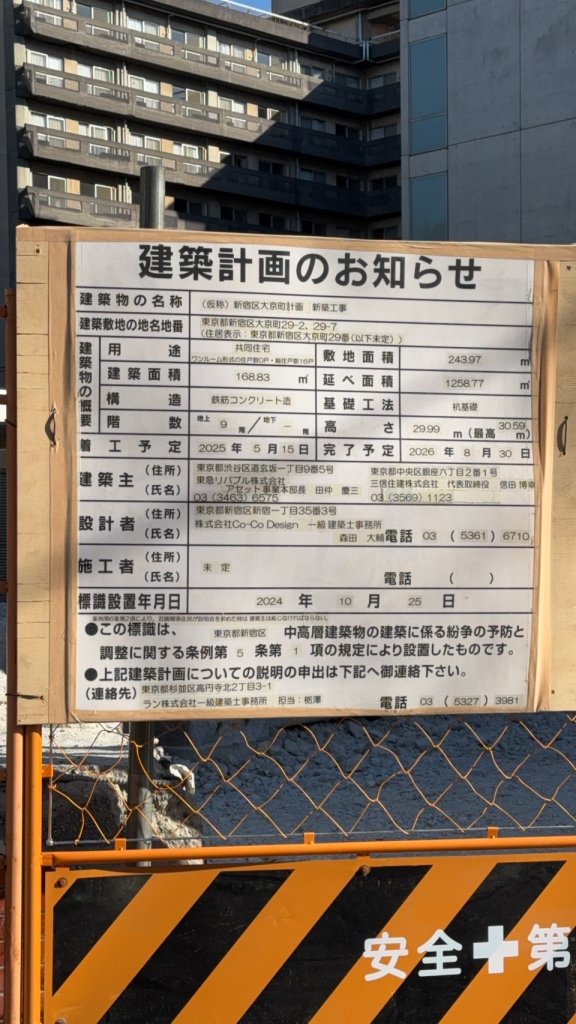 建築計画のお知らせ
建築物の名称 (仮称)新宿区大京町計画 新築工事
建築敷地の地名地番 東京都新宿区大京町29-2、29-7
(住居表示:東京都新宿区大京町29番(以下未定))
建築物の概要
用途 共同住宅
ワンルーム形式の住戸数0戸・総住戸数16戸
敷地面積 243.97 ㎡
建築面積 168.83 ㎡ 延べ面積 1258.77 ㎡
構造 鉄筋コンクリート造 基礎工法 杭基礎
階数 地上 9 階/地下 ー 階 高さ 29.99 m(最高 30.59 m)
着工予定 2025年 5月 15日 完了予定 2026年 8月 30日
建築主 (住所) 東京都渋谷区道玄坂一丁目9番5号 東京都中央区銀座六丁目2番1号
(氏名) 東急リバブル株式会社 三信住建株式会社 代表取締役 信田 博幸
アセット事業本部長 田仲 慶三
03 (3463) 6575 03 (3569) 1123
設計者 (住所) 東京都新宿区新宿一丁目35番3号
(氏名) 株式会社Co-Co Design 一級建築士事務所
森田 大輔 電話 03 (5361) 6710
施工者 (住所)
(氏名) 未定
電話 ( )
標識設置年月日 2024 年 10 月 25 日
●この標識は、 東京都新宿区 中高層建築物の建築に係る紛争の予防と
調整に関する条例第 5 条第 1 項の規定により設置したものです。
●上記建築計画についての説明の申出は下記へ御連絡下さい。
(連絡先) 東京都杉並区高円寺北2丁目3-1
ラン株式会社一級建築士事務所 担当:栃澤 電話 03 (5327) 3981
安全✚第